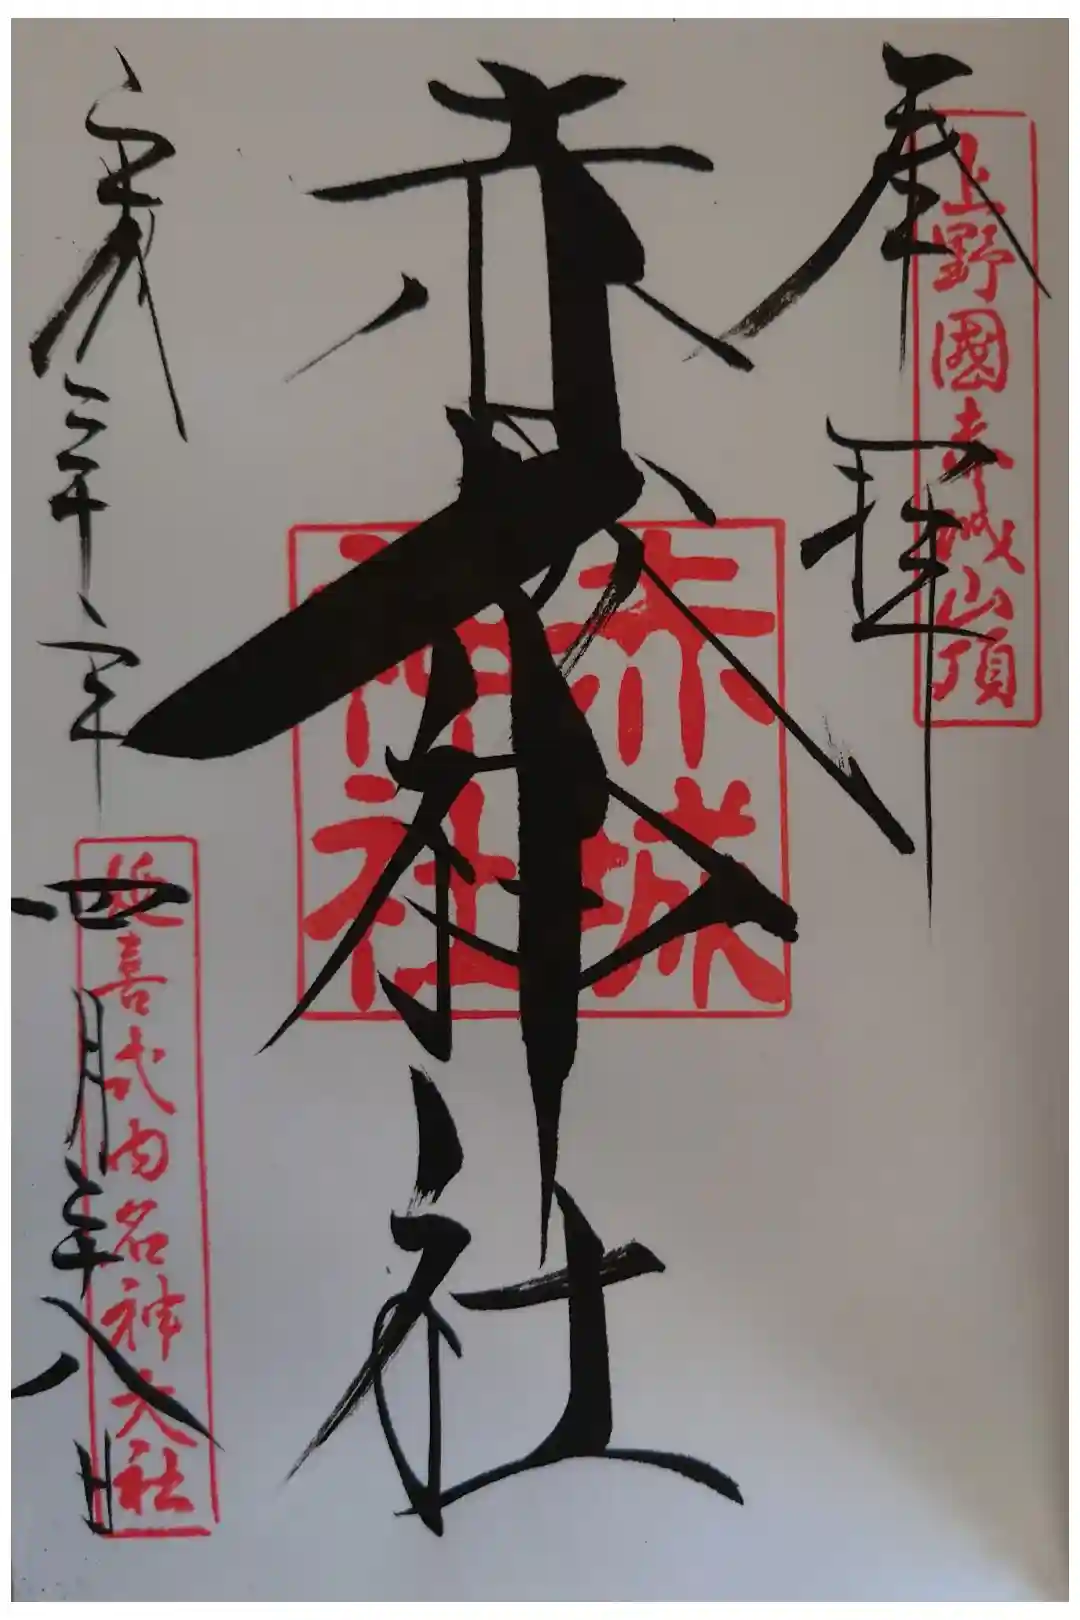 奉拝
上野國赤城山頂
赤城神社
赤城神社
平成三十年四月二十八日
延喜式内名神大社